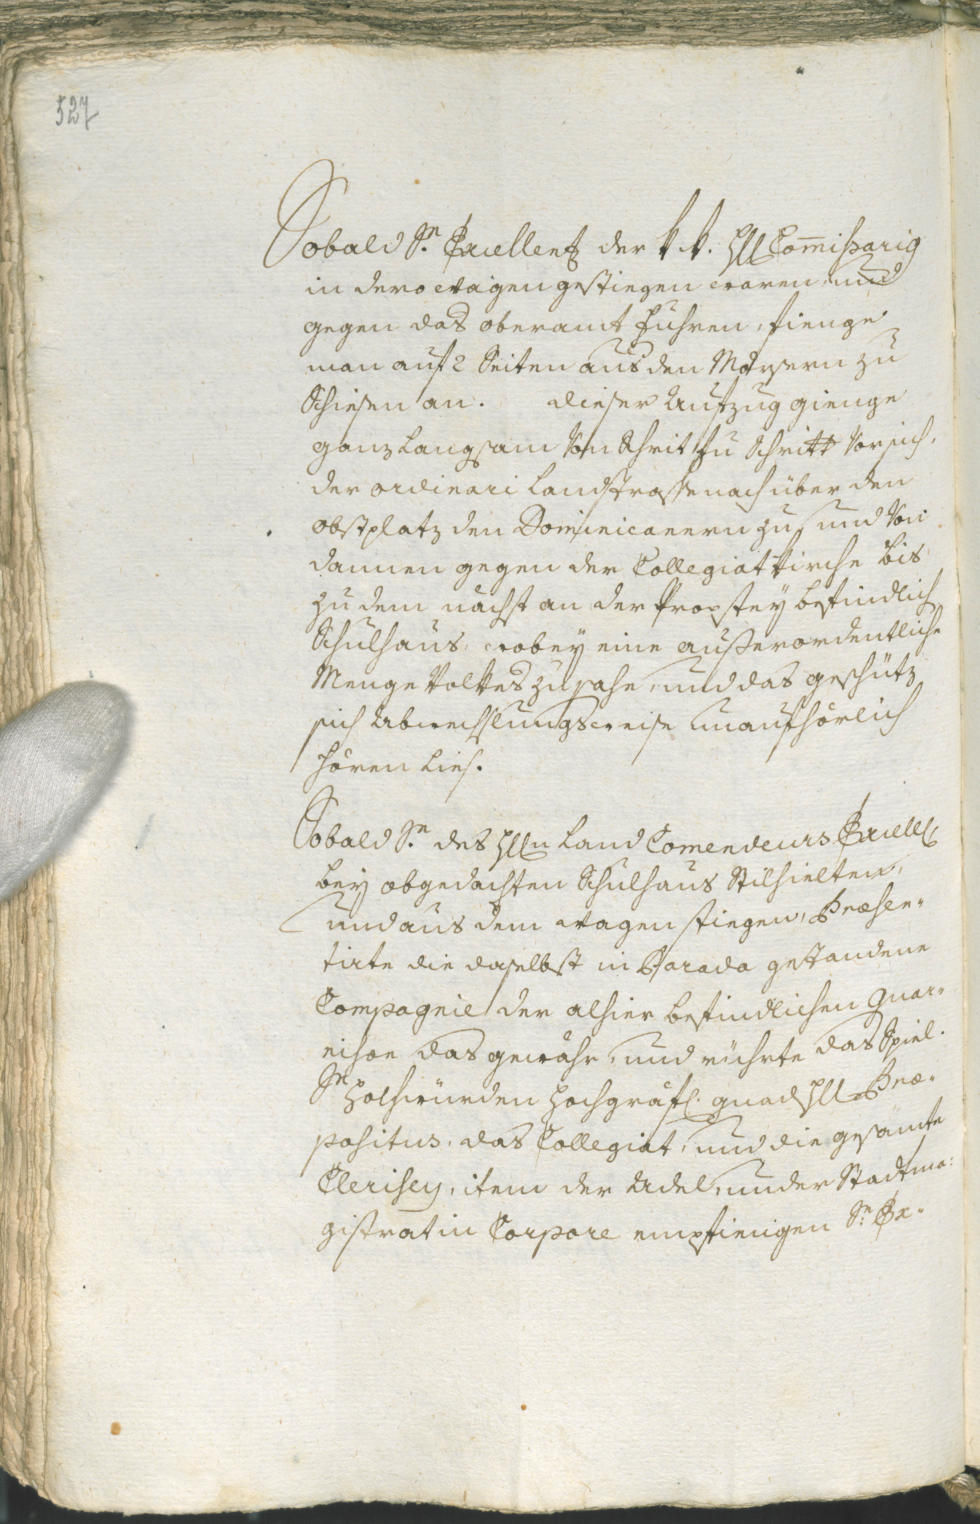 527
Sobald Sn. Excellentz der k. k. Hll Com̅ißarig
in dero wagen gestiegen waren, und
gegen das oberamt fuhren, fienge
man auf 2 Seiten aus den Mörsern zu
Schiesen an. dieser Aufzug gienge
ganz Langsam Von Schrit zu Schritt Vor sich,
der ordinari Landstrasse nach über den
obstplatz den Dominicanern zu, und Von
dannen gegen der Collegiatkirche bis
zu dem nächst an der Propstey befindlich
Schulhaus, wobey eine außerordentliche
Menge Volkes zusahe, und das geschütz
sich Abwechslungsweise unaufhörlich
hören lies.
Sobald Sn. des Hlln Land Comendeurs Excell
bey obgedachten Schulhaus Stilhielten,
und aus dem wagen stiegen, Præsen-
tirte die daselbst in Parada gestandene
Compagnie der alhier befindlichen Guar-
nison das gewähr, und rührte das Spiel.
Sn Hochwürden Hochgräfl. gnad Hll Præ-
positus, das Collegiat, und die gesamte
Clerisey, item der Adel, und der Stadtma-
gistrat in Corpore empfiengen Sn. Ex-